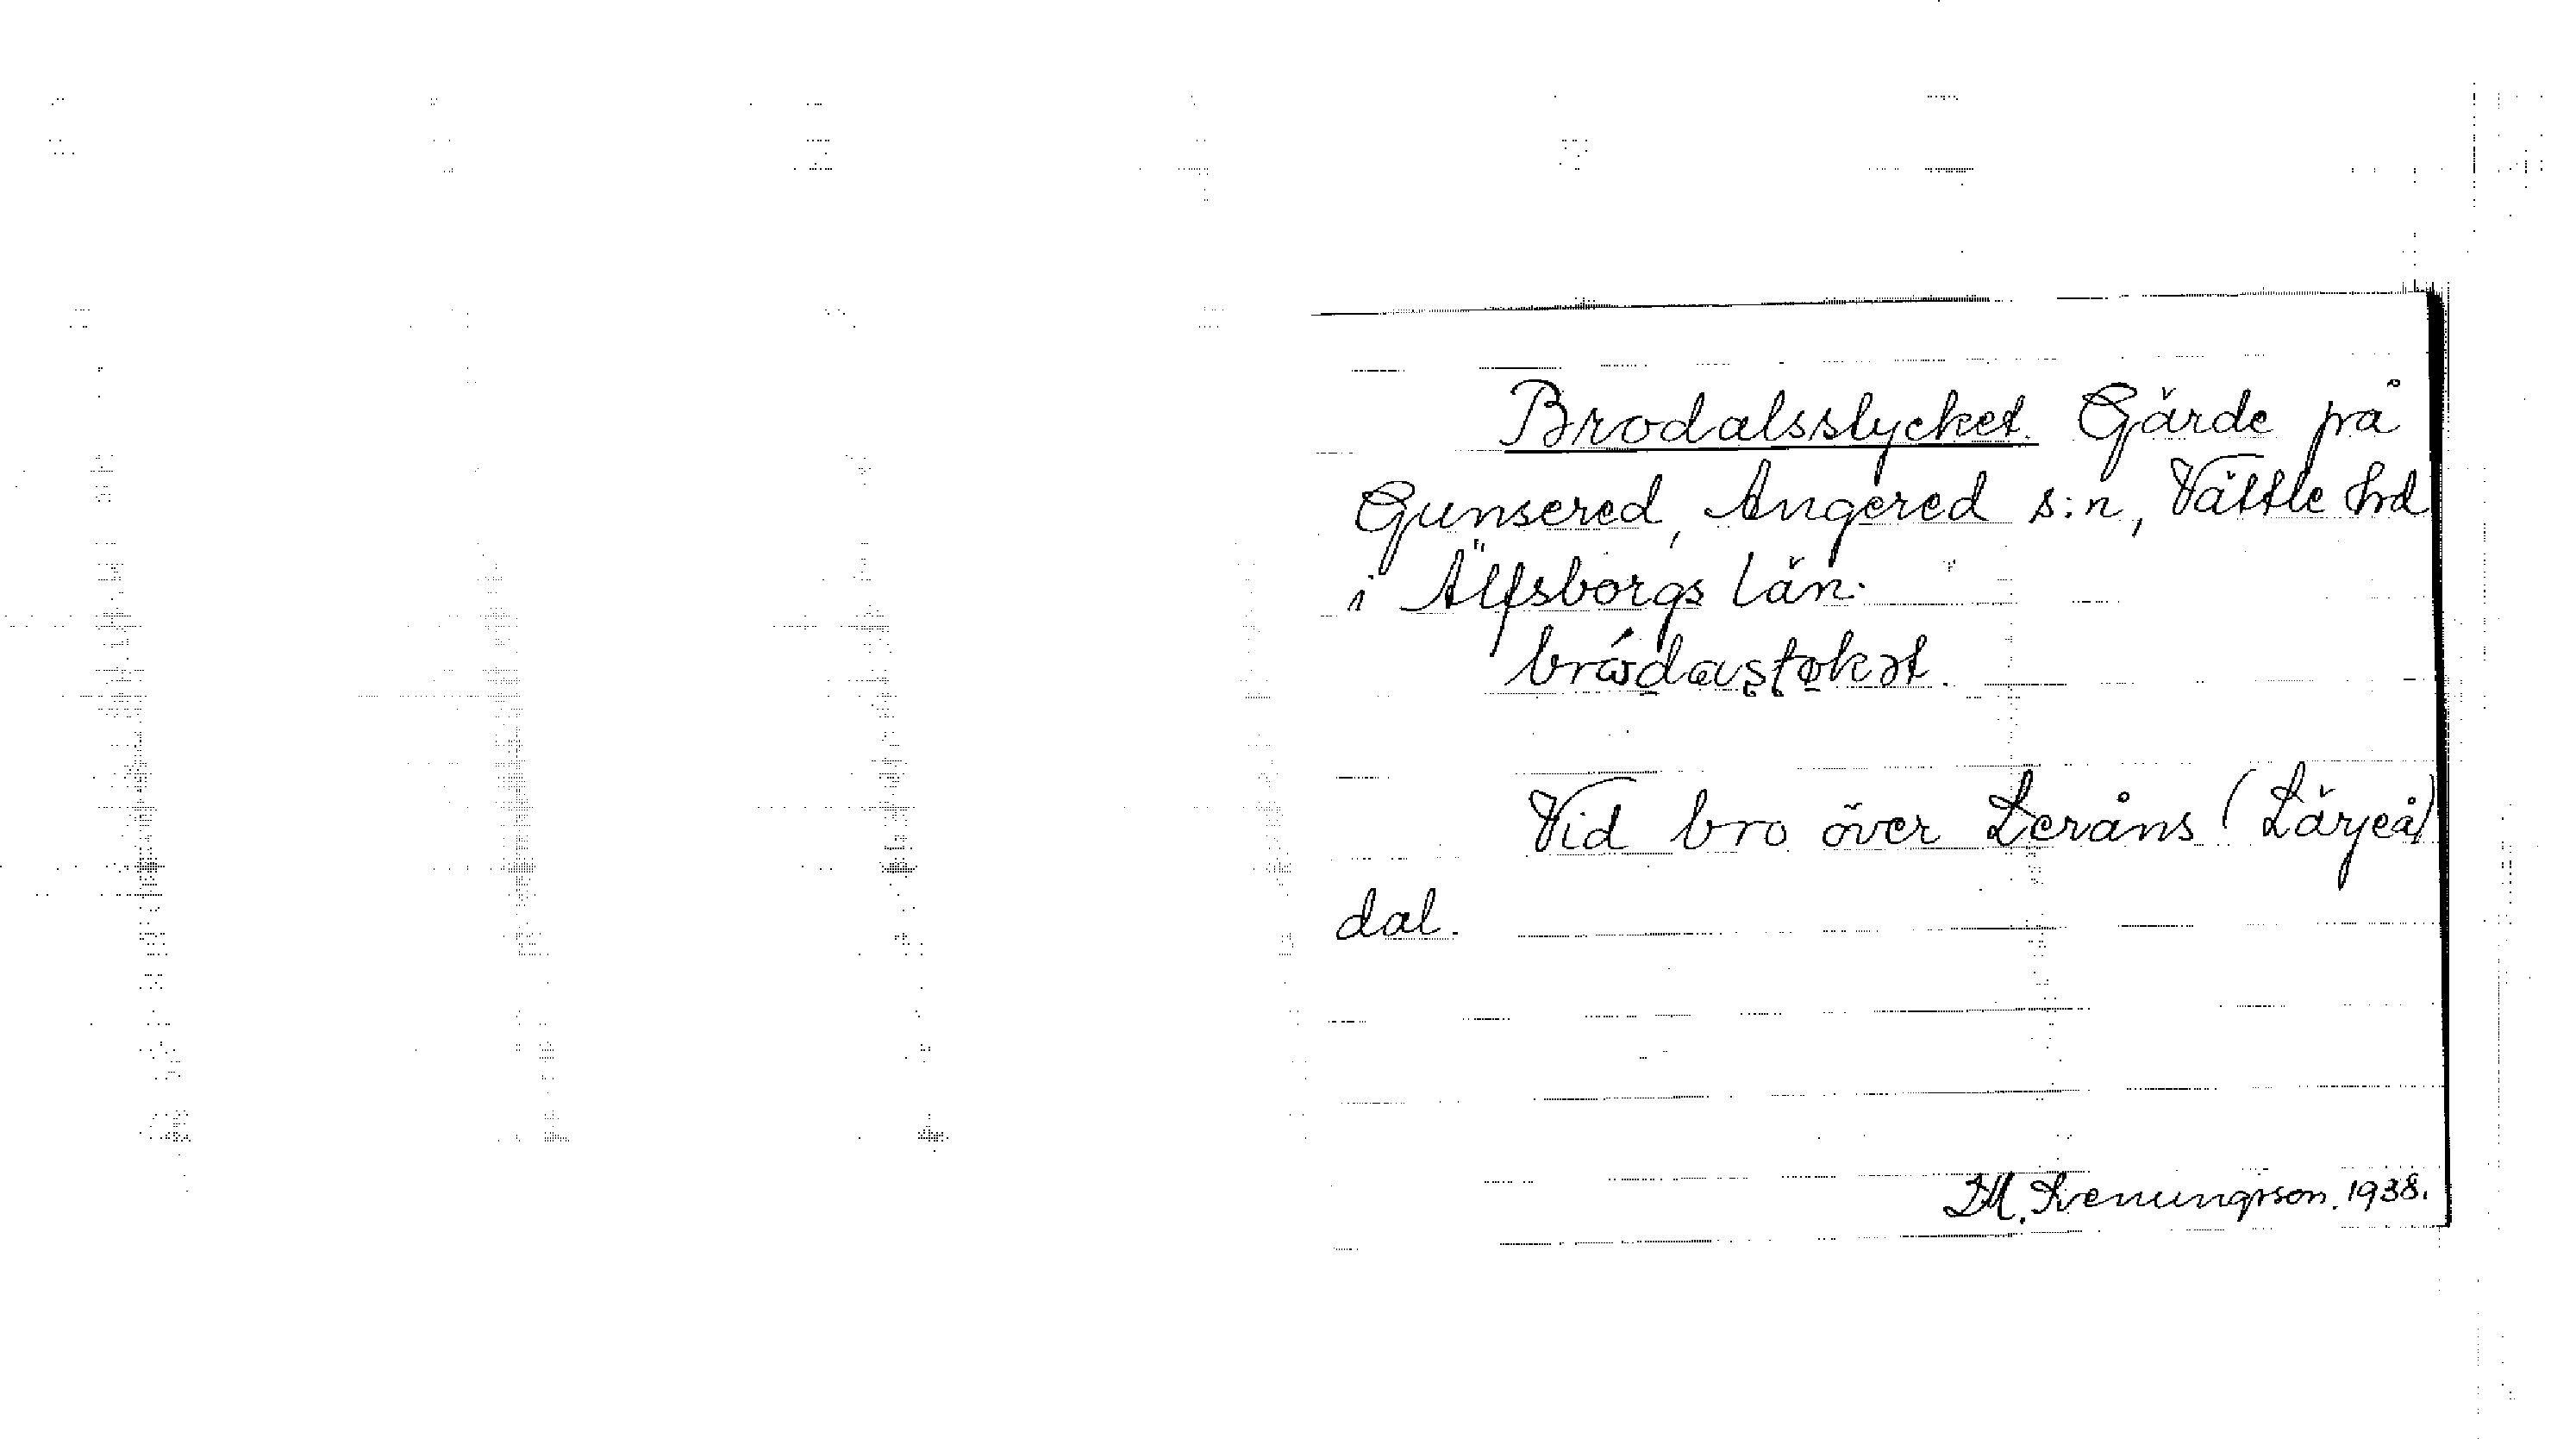 Brodalsstycket. Gärde på
Gunsered, Angered s:n, Vättle hd
i Älfsborgs län.
brǿdastøkət.
Vid bro över Leråns (Lärjeå)
dal.
1938.